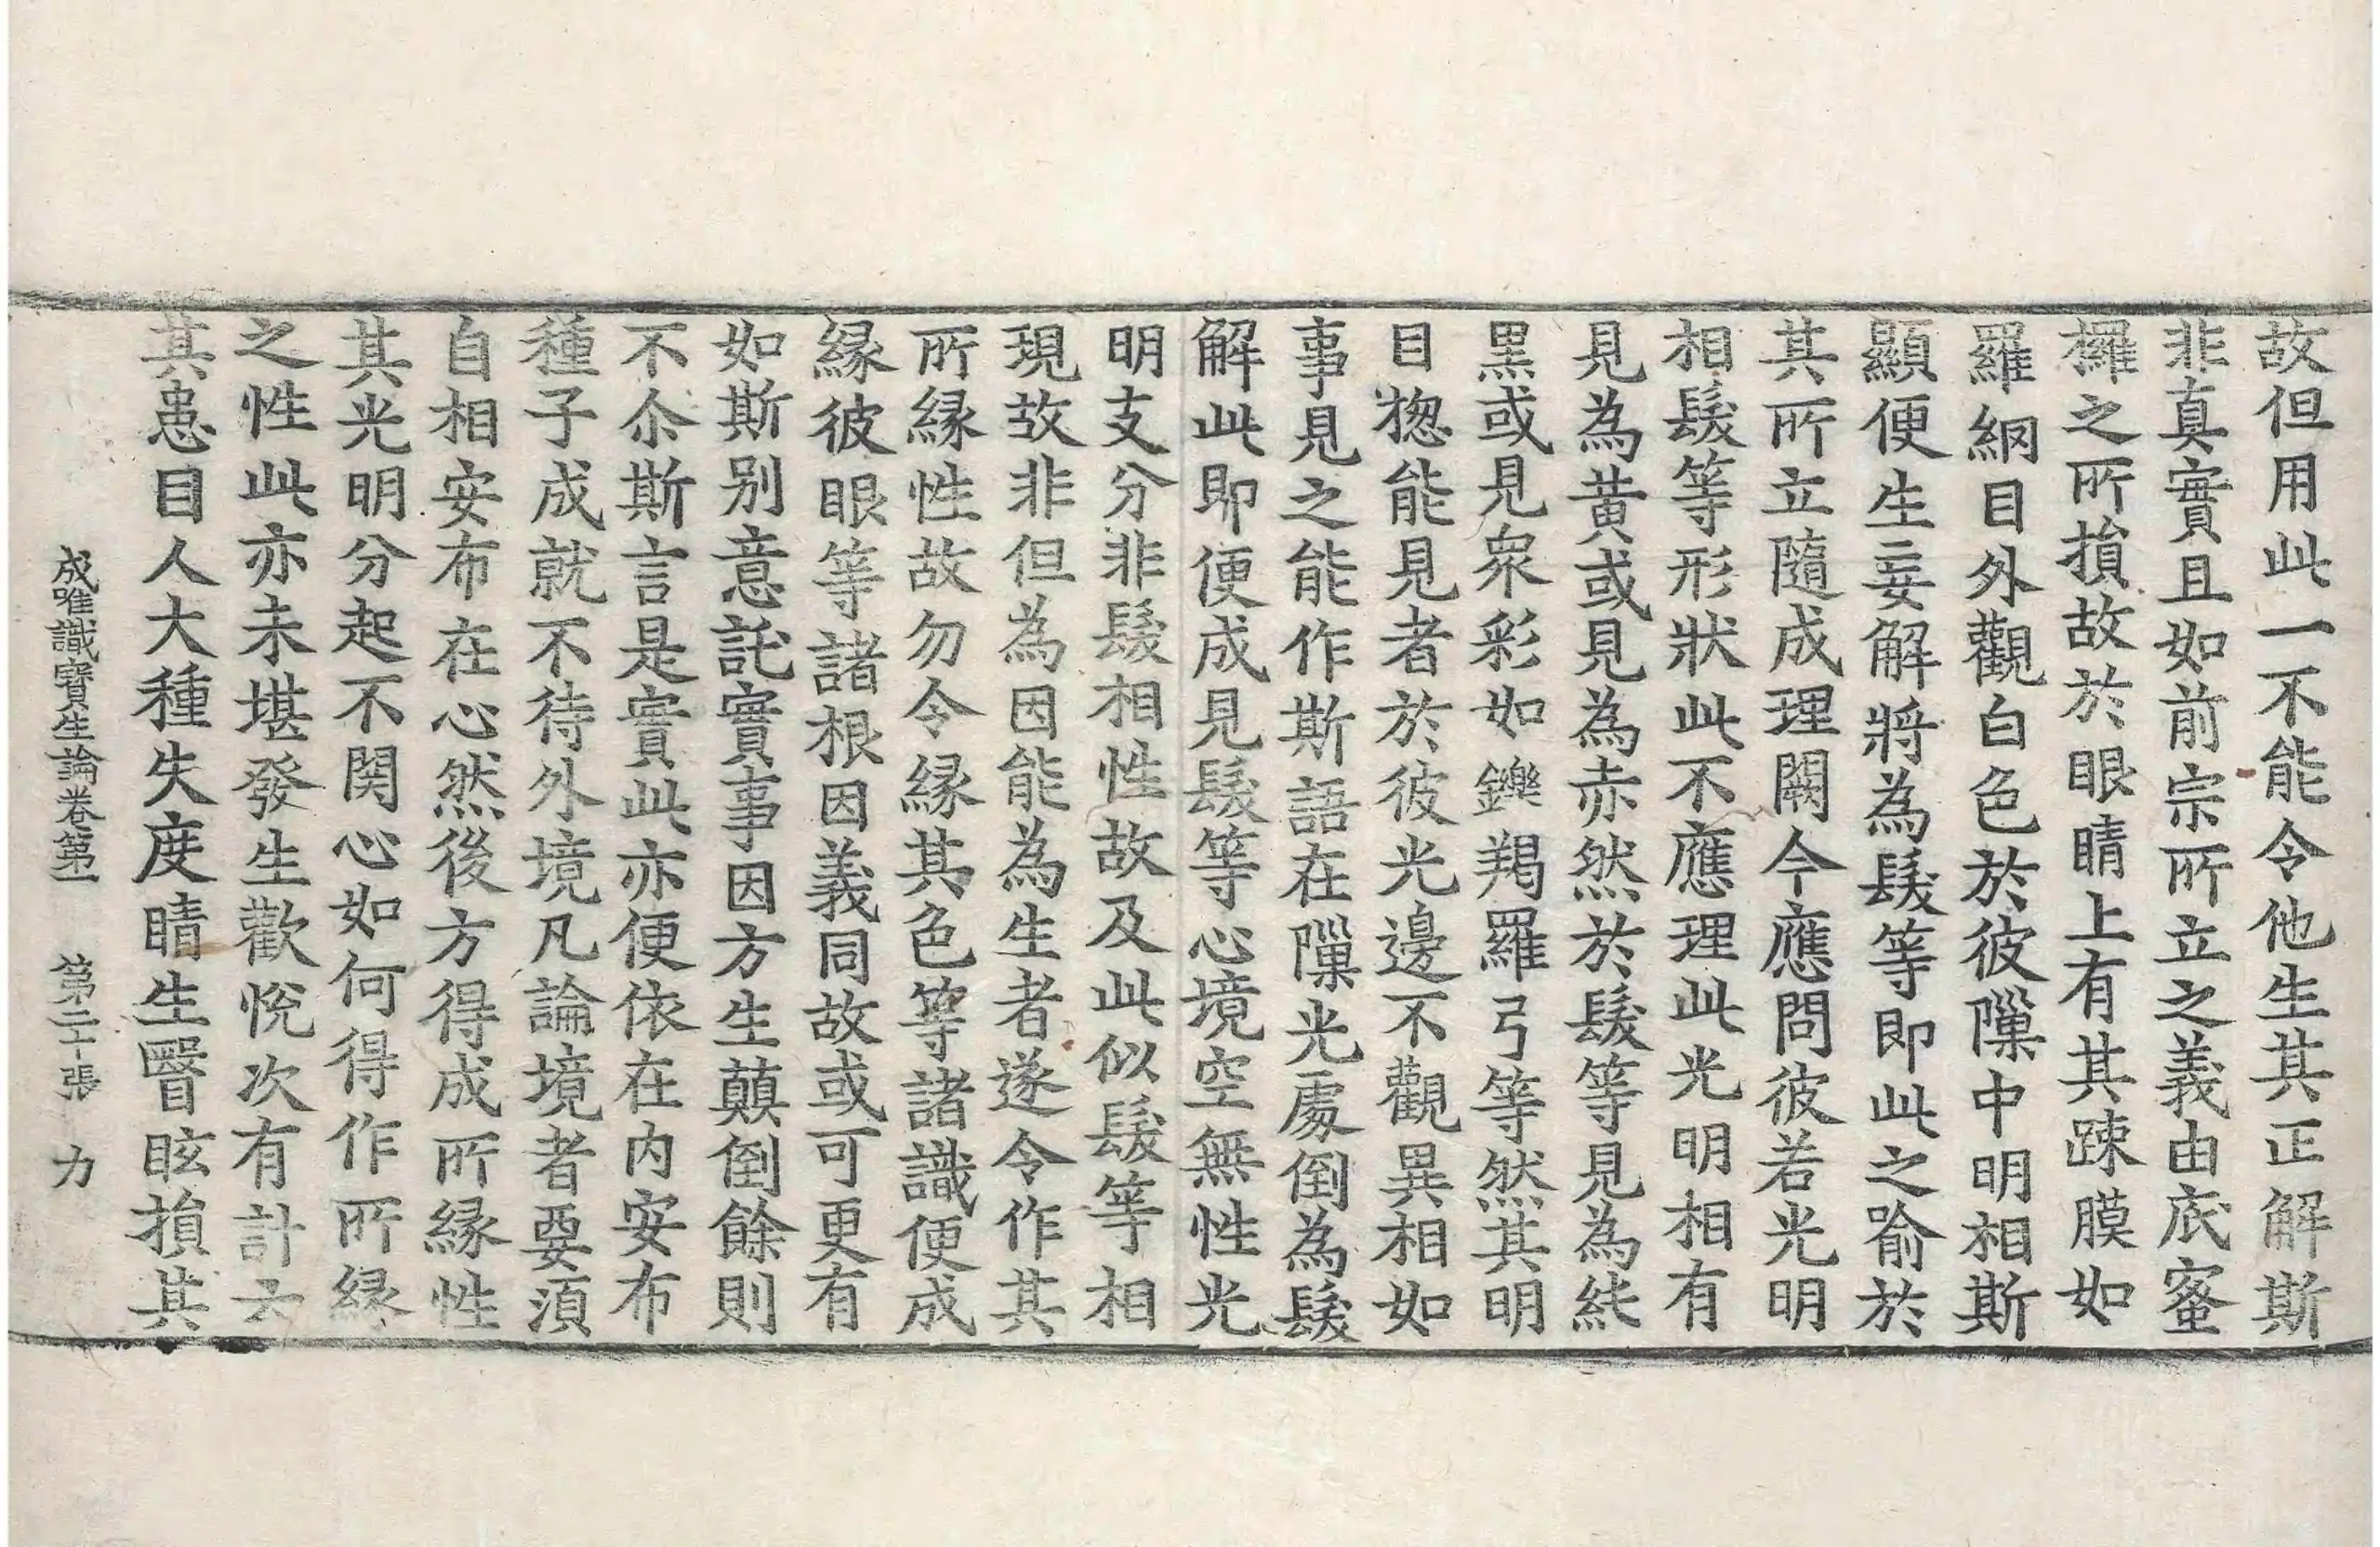 故但用此一不能令他生其正解斯
非真實且如前宗所立之義由㡳蜜
㰚之所損故於眼睛上有其踈膜如
羅網目外觀白色於彼隟中明相斯
顯便生妄解將為髮等即此之喻於
其所立隨成理闕今應問彼若光明
相髮等形狀此不應理此光明相有
見為黃或見為赤然於髮等見為純
黑或見衆彩如鑠羯羅弓等然其明
目揔能見者於彼光邊不觀異相如
事見之能作斯語在隟光處倒為髮
解此即便成見髮等心境空無性光
明支分非髮相性故及此似髮等相
現故非但為因能為生者遂令作其
所緣性故勿令緣其色等諸識便成
緣彼眼等諸根因義同故或可更有
如斯別意託實事因方生顛倒餘則
不尒斯言是實此亦便依在内安布
種子成就不待外境凡論境者要須
自相安布在心然後方得成所緣性
其光明分起不関心如何得作所緣
之性此亦未堪發生歡悅次有計云
其患目人大種失度睛生瞖眩損其
成唯識寶生論卷第一　第二十張　力